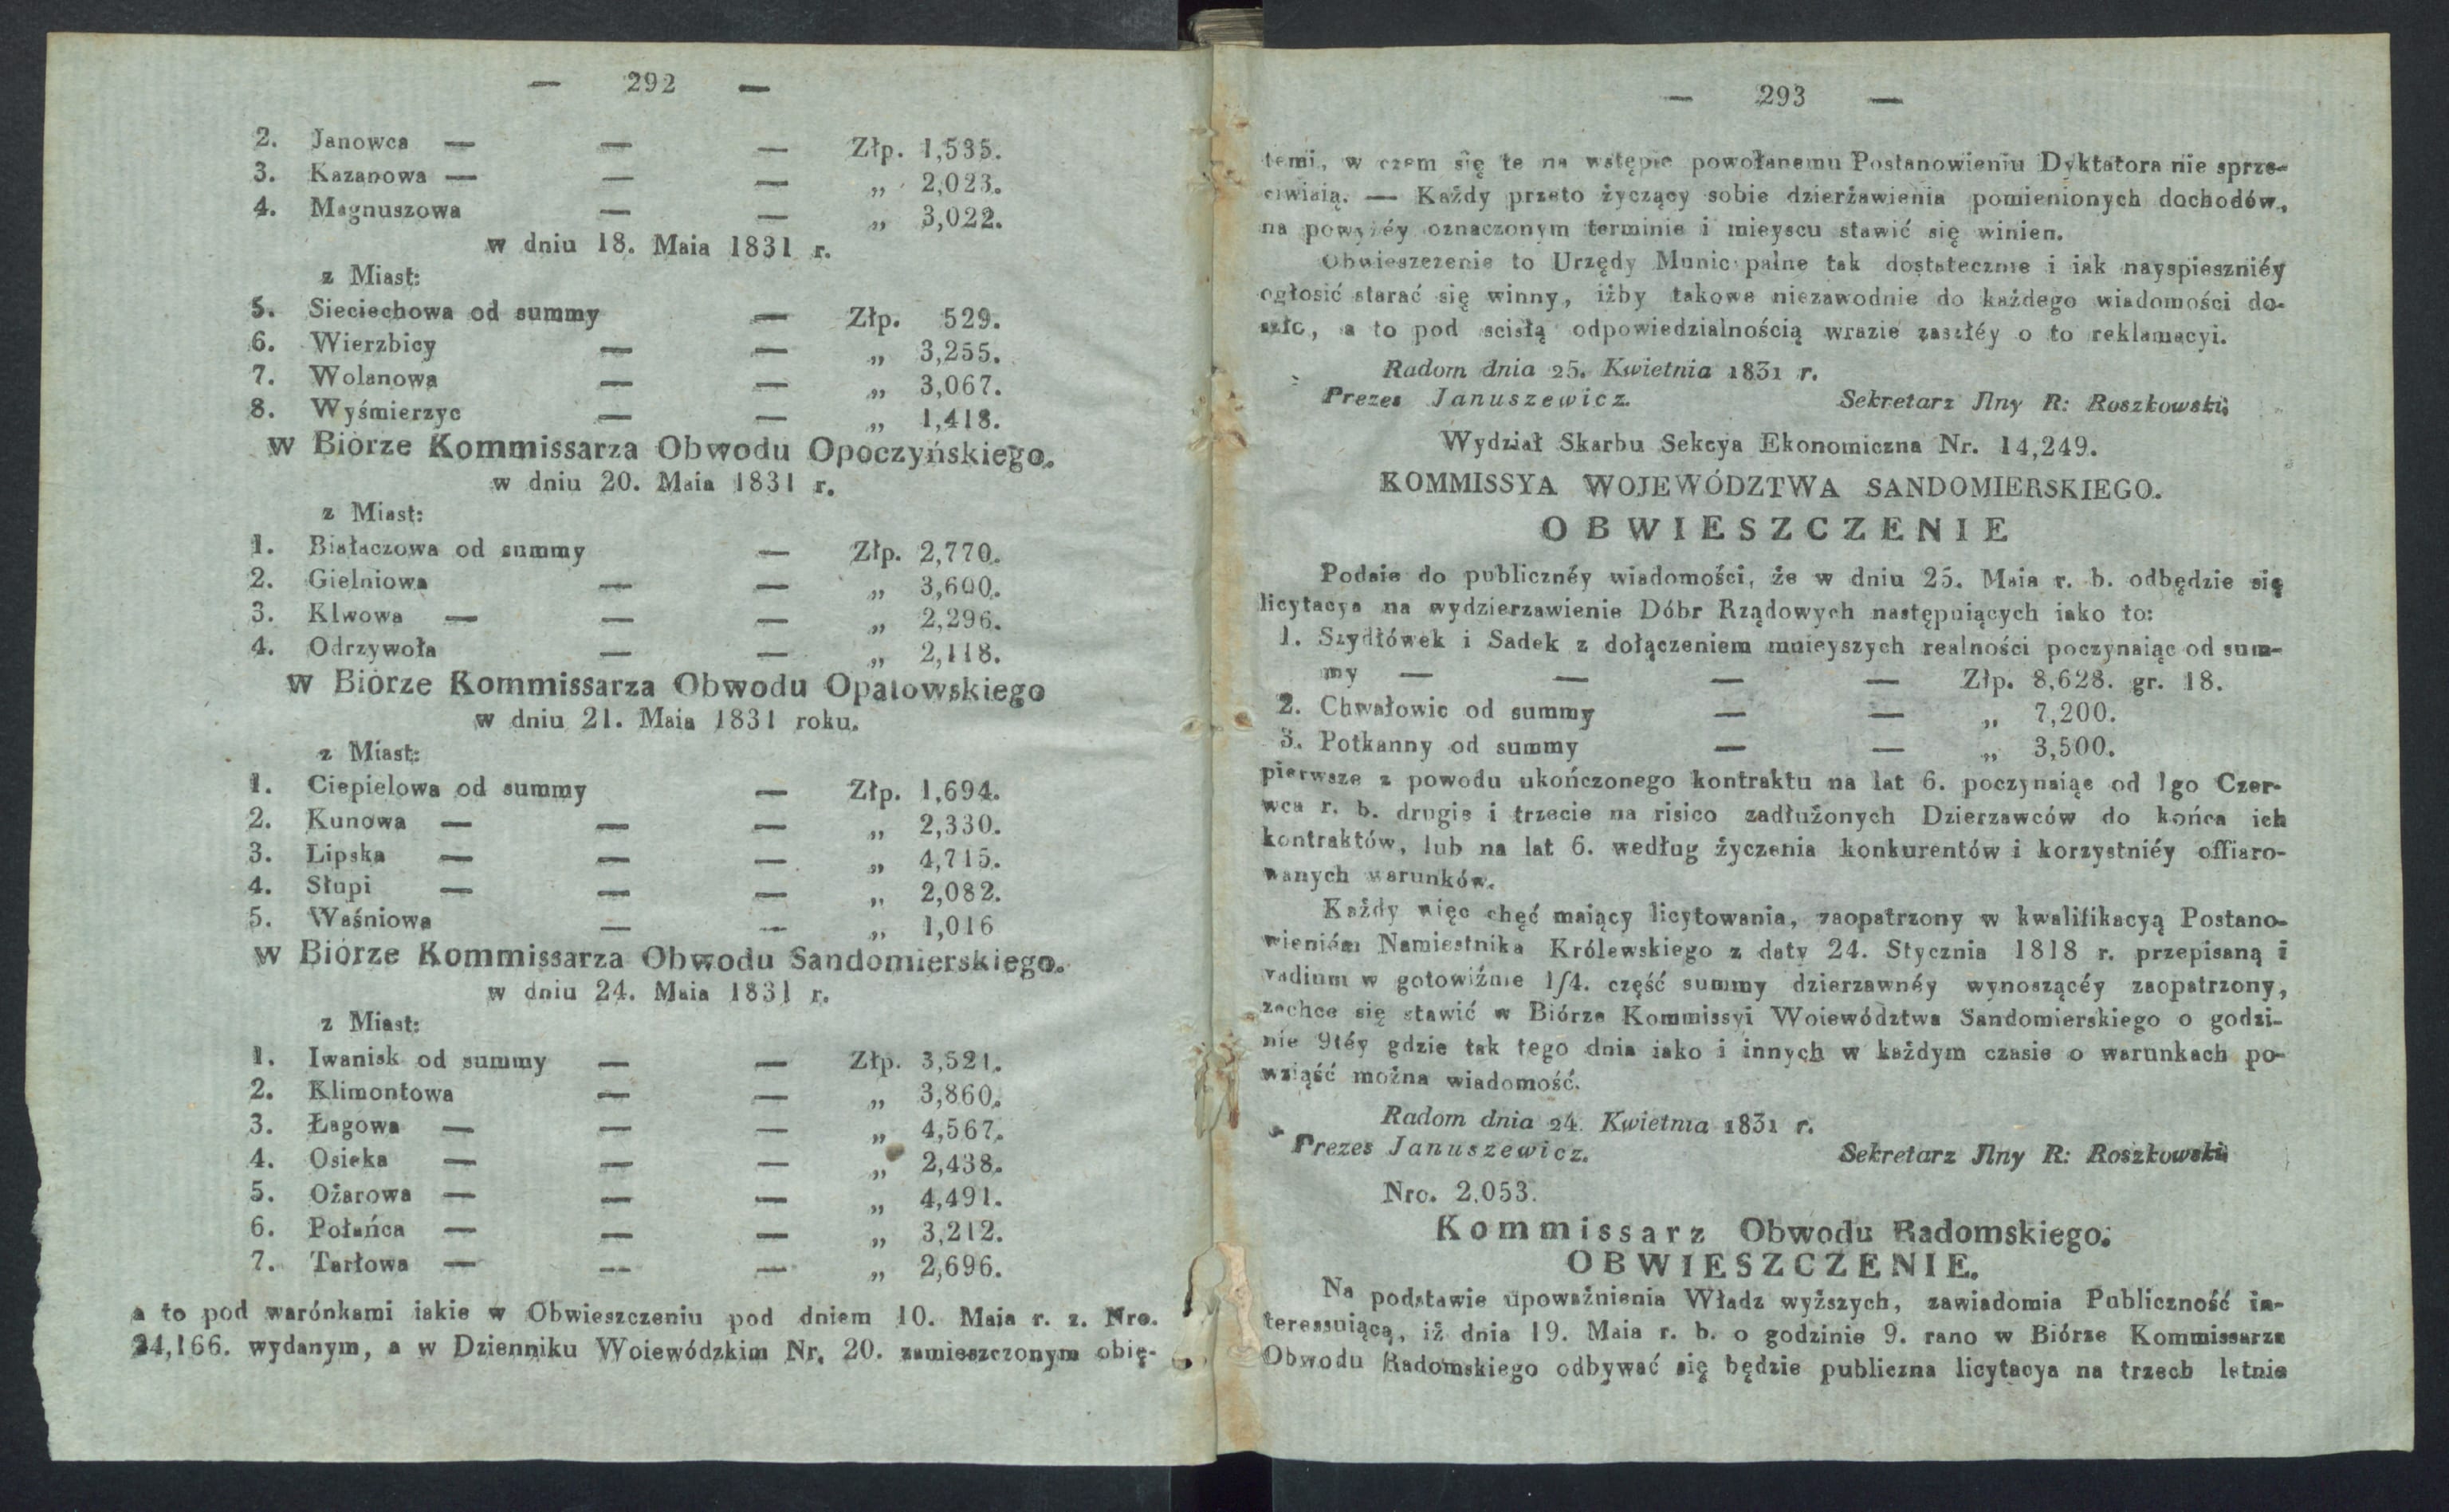 — 292 —
2. Janowca — — — Złp. 1,535.
3. Kazanowa — — — „ 2,023.
4. Magnuszowa — — „ 3,022.
w dniu 18. Maia 1831 r.
z Miast:
5. Sieciechowa od summy — Złp. 529.
6. Wierzbicy — — „ 3,255.
7. Wolanowa — — „ 3,067.
8. Wyśmierzyc — — „ 1,418.
w Biórze Kommissarza Obwodu Opoczyńskiego.
w dniu 20. Maia 1831 r.
z Miast:
1. Białaczowa od summy — Złp. 2,770.
2. Gielniowa — — „ 3,600.
3. Klwowa — — — „ 2,296.
4. Odrzywoła — — „ 2,118.
w Biórze Kommissarza Obwodu Opatowskiego
w dniu 21. Maia 1831 roku.
z Miast:
1. Ciepielowa od summy — Złp. 1,694.
2. Kunowa — — — „ 2,330.
3. Lipska — — — „ 4,715.
4. Słupi — — — „ 2,082.
5. Waśniowa — — „ 1,016
w Biórze Kommissarza Obwodu Sandomierskiego.
w dniu 24. Maia 1831 r.
z Miast:
1. Iwanisk od summy — — Złp. 3,521.
2. Klimontowa — — „ 3,860.
3. Łagowa — — — „ 4,567.
4. Osieka — — — „ 2,438.
5. Ożarowa — — — „ 4,491.
6. Połańca — — — „ 3,212.
7. Tarłowa — — — „ 2,696.
a to pod warónkami iakie w Obwieszczeniu pod dniem 10. Maia r. z. Nro.
24,166. wydanym, a w Dzienniku Woiewódzkim Nr. 20. zamieszczonym obię-
— 293 —
temi, w czem się te na wstępie powołanemu Postanowieniu Dyktatora nie sprze-
ciwiaią. — Każdy przeto życzący sobie dzierżawienia pomienionych dochodów,
na powyżéy oznaczonym terminie i mieyscu stawić się winien.
Obwieszczenie to Urzędy Municypalne tak dostatecznie i iak nayspieszniéy
ogłosić starać się winny, iżby takowe niezawodnie do każdego wiadomości do-
szło, a to pod scisłą odpowiedzialnością wrazie zaszłéy o to reklamacyi.
Radom dnia 25. Kwietnia 1831 r.
Prezes Januszewicz. Sekretarz Jlny R: Roszkowski
Wydział Skarbu Sekcya Ekonomiczna Nr. 14,249.
KOMMISSYA WOJEWÓDZTWA SANDOMIERSKIEGO.
OBWIESZCZENIE
Podaie do publicznéy wiadomości, że w dniu 25. Maia r. b. odbędzie się
licytacya na wydzierzawienie Dóbr Rządowych następuiących iako to:
1. Szydłówek i Sadek z dołączeniem mnieyszych realności poczynaiąc od sum-
my — — — — Złp. 8,628. gr. 18.
2. Chwałowic od summy — — „ 7,200.
3. Potkanny od summy — — „ 3,500.
pierwsze z powodu ukończonego kontraktu na lat 6. poczynaiąc od 1go Czer-
wca r. b. drugie i trzecie na risico zadłużonych Dzierzawców do końca ich
kontraktów, lub na lat 6. według życzenia konkurentów i korzystniéy offiaro-
wanych warunków.
Każdy więc chęć maiący licytowania, zaopatrzony w kwalifikacyą Postano-
wieniém Namiestnika Królewskiego z daty 24. Stycznia 1818 r. przepisaną i
vadium w gotowiźnie 1/4. część summy dzierzawnéy wynoszącéy zaopatrzony,
zechce się stawić w Biórze Kommissyi Woiewództwa Sandomierskiego o godzi-
nie 9téy gdzie tak tego dnia iako i innych w każdym czasie o warunkach po-
wziąść można wiadomość.
Radom dnia 24. Kwietnia 1831 r.
Prezes Januszewicz. Sekretarz Jlny R: Roszkowski
Nro. 2,053.
Kommissarz Obwodu Radomskiego.
OBWIESZCZENIE.
Na podstawie upoważnienia Władz wyższych, zawiadomia Publiczność in-
teressuiącą, iż dnia 19. Maia r. b. o godzinie 9. rano w Biórze Kommissarza
Obwodu Radomskiego odbywać się będzie publiczna licytacya na trzech letnie